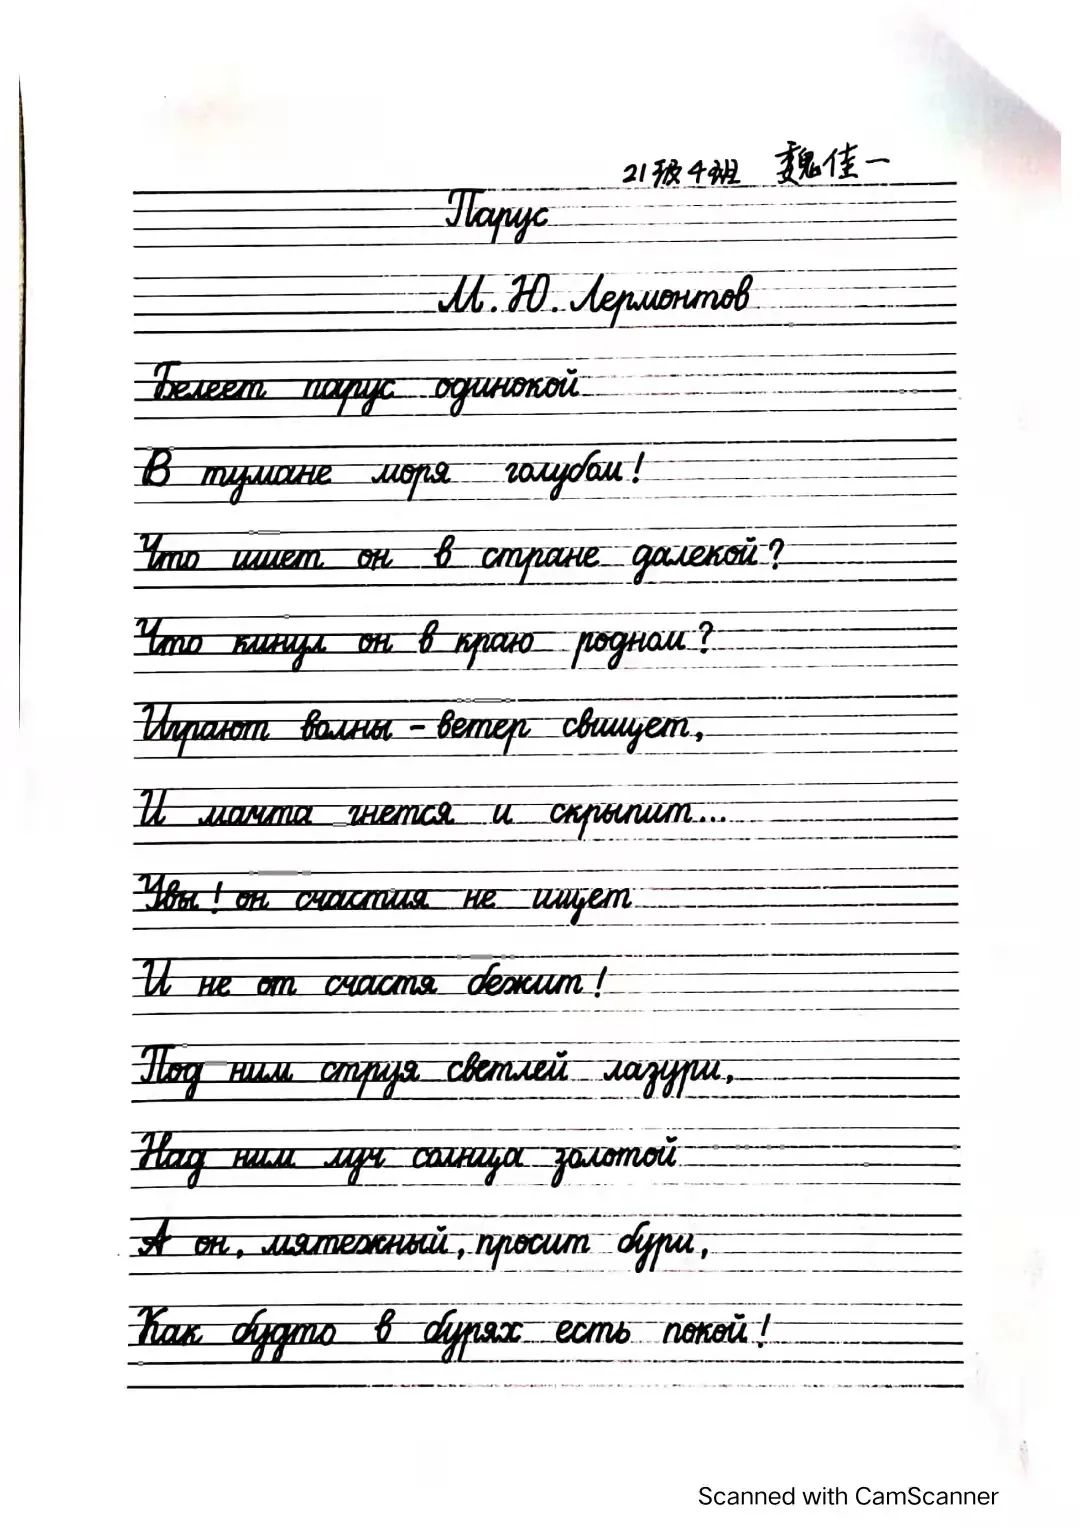 21级4班 魏佳一
Парус
М. Ю. Лермонтов
Белеет парус одинокой
В тумане моря голубом!
Что ищет он в стране далекой?
Что кинул он в краю родном?
Играют волны - ветер свищет,
И мачта гнется и скрыпит...
Увы! он счастия не ищет
И не от счастя бежит!
Под ним струя светлей лазури,
Над ним луч солнца золотой
А он, мятежный, просит бури,
Как будто в бурях есть покой!
Scanned with CamScanner